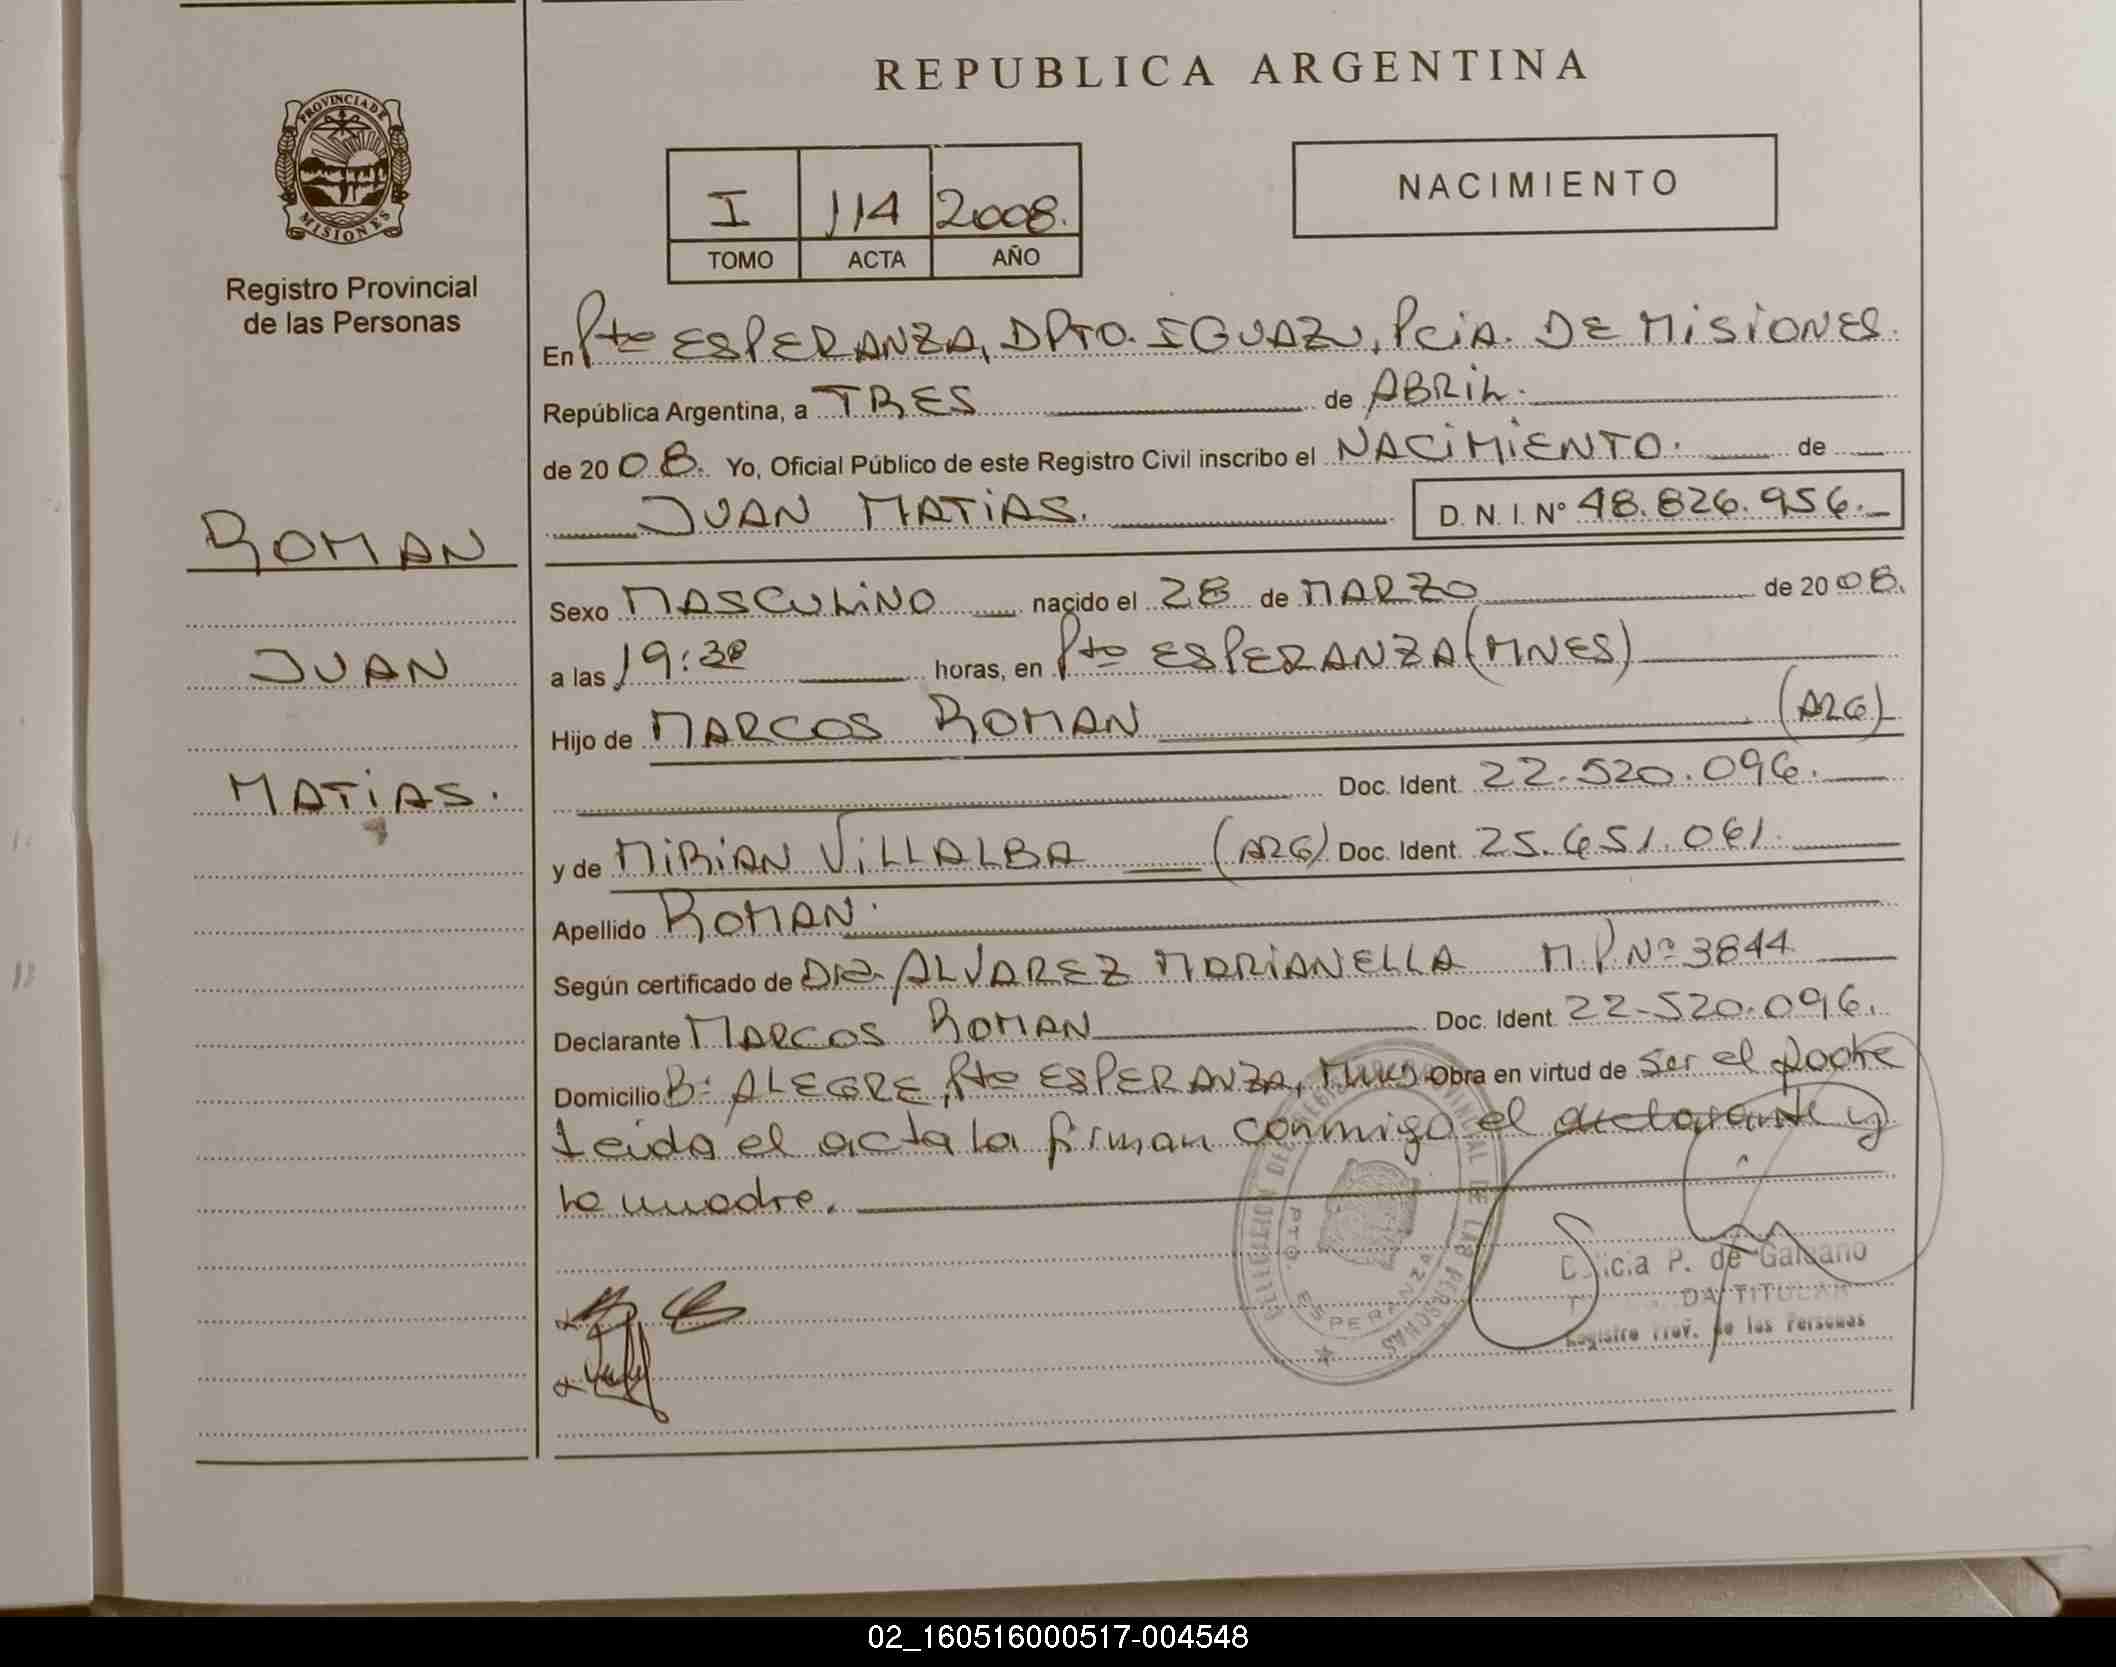 REPUBLICA ARGENTINA
PROVINCIA DE
MISIONES
Registro Provincial
de las Personas
I 114 2008.
TOMO ACTA AÑO
NACIMIENTO
En Pto ESPERANZA, DPTO. IGUAZU, PciA. DE MISIONES.
República Argentina, a TRES de ABRIL.
de 2008. Yo, Oficial Público de este Registro Civil inscribo el NACIMIENTO. de
JUAN MATIAS. D. N. I. Nº 48.826.956.
ROMAN
JUAN
MATIAS.
Sexo MASCULINO nacido el 28 de MARZO de 2008.
a las 19:30 horas, en Pto ESPERANZA (MNES)
Hijo de MARCOS ROMAN (ARG)
Doc. Ident. 22.520.096.
y de MIRIAN VILLALBA (ARG) Doc. Ident. 25.651.061.
Apellido ROMAN.
Según certificado de DRA. ALVAREZ MARIANELLA M.P. Nº 3844
Declarante MARCOS ROMAN Doc. Ident. 22.520.096.
Domicilio Bº ALEGRE, Pto ESPERANZA, Mnes Obra en virtud de ser el padre
Leida el acta la firman conmigo el declarante y
la madre.
DELEGACION DEL REGISTRO PROVINCIAL DE LAS PERSONAS
PTO. ESPERANZA
P. de
DA TITULAR
Registro Prov. de las Personas
02_160516000517-004548